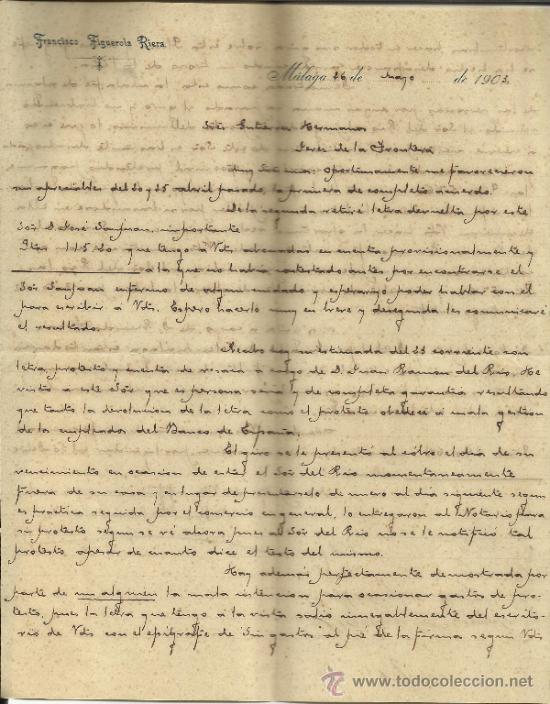 Francisco Figuerola Riera
Málaga 26 de Mayo de 1903.
Sres Gutierrez Hermanos
Jerez de la Frontera
Muy Sres mios: Oportunamente me favorecieron
sus apreciables del 20 y 25 abril pasado, la primera de completo acuerdo.
De la segunda retiré letra devuelta por este
Sor D. José Sanjuan, importante
Ptas 115.20 que tengo a Vds abonadas en cuenta provisionalmente y
a la que no habia contestado antes por encontrarse el
Sor Sanjuan enfermo de algun cuidado y esperarya poder hablar con él
para escribir á Vds. Espero hacerlo muy en breve y deseguida les comunicaré
el resultado.
Recibo hoy su estimada del 23 corriente con
letra, protesto y cuenta de resaca a cargo de D. Juan Ramon del Rio. He
visto a este Sor que es persona séria y de completa garantia resultando
que tanto la devolucion de la letra como el protesto obedece á mala gestion
de los empleados del Banco de España.
El giro se le presentó al cobro el dia de su
vencimiento en ocasion de estar el Sor del Rio momentaneamente
fuera de su casa y en lugar de presentarselo de nuevo al dia siguiente segun
es practica seguida por el comercio en general, lo entregaron al Notario para
su protesto segun se vé ahora pues al Sor del Rio no se le notificó tal
protesto, apesar de cuanto dice el texto del mismo.
Hay además perfectamente demostrada por
parte de un alguien la mala intencion para ocasionar gastos de pro-
testo, pues la letra que tengo á la vista salió innegablemente del escrito-
rio de Vds con el epigrafe de "Sin gastos" al pié de la firma segun Vds
todocoleccion
www.todocoleccion.net